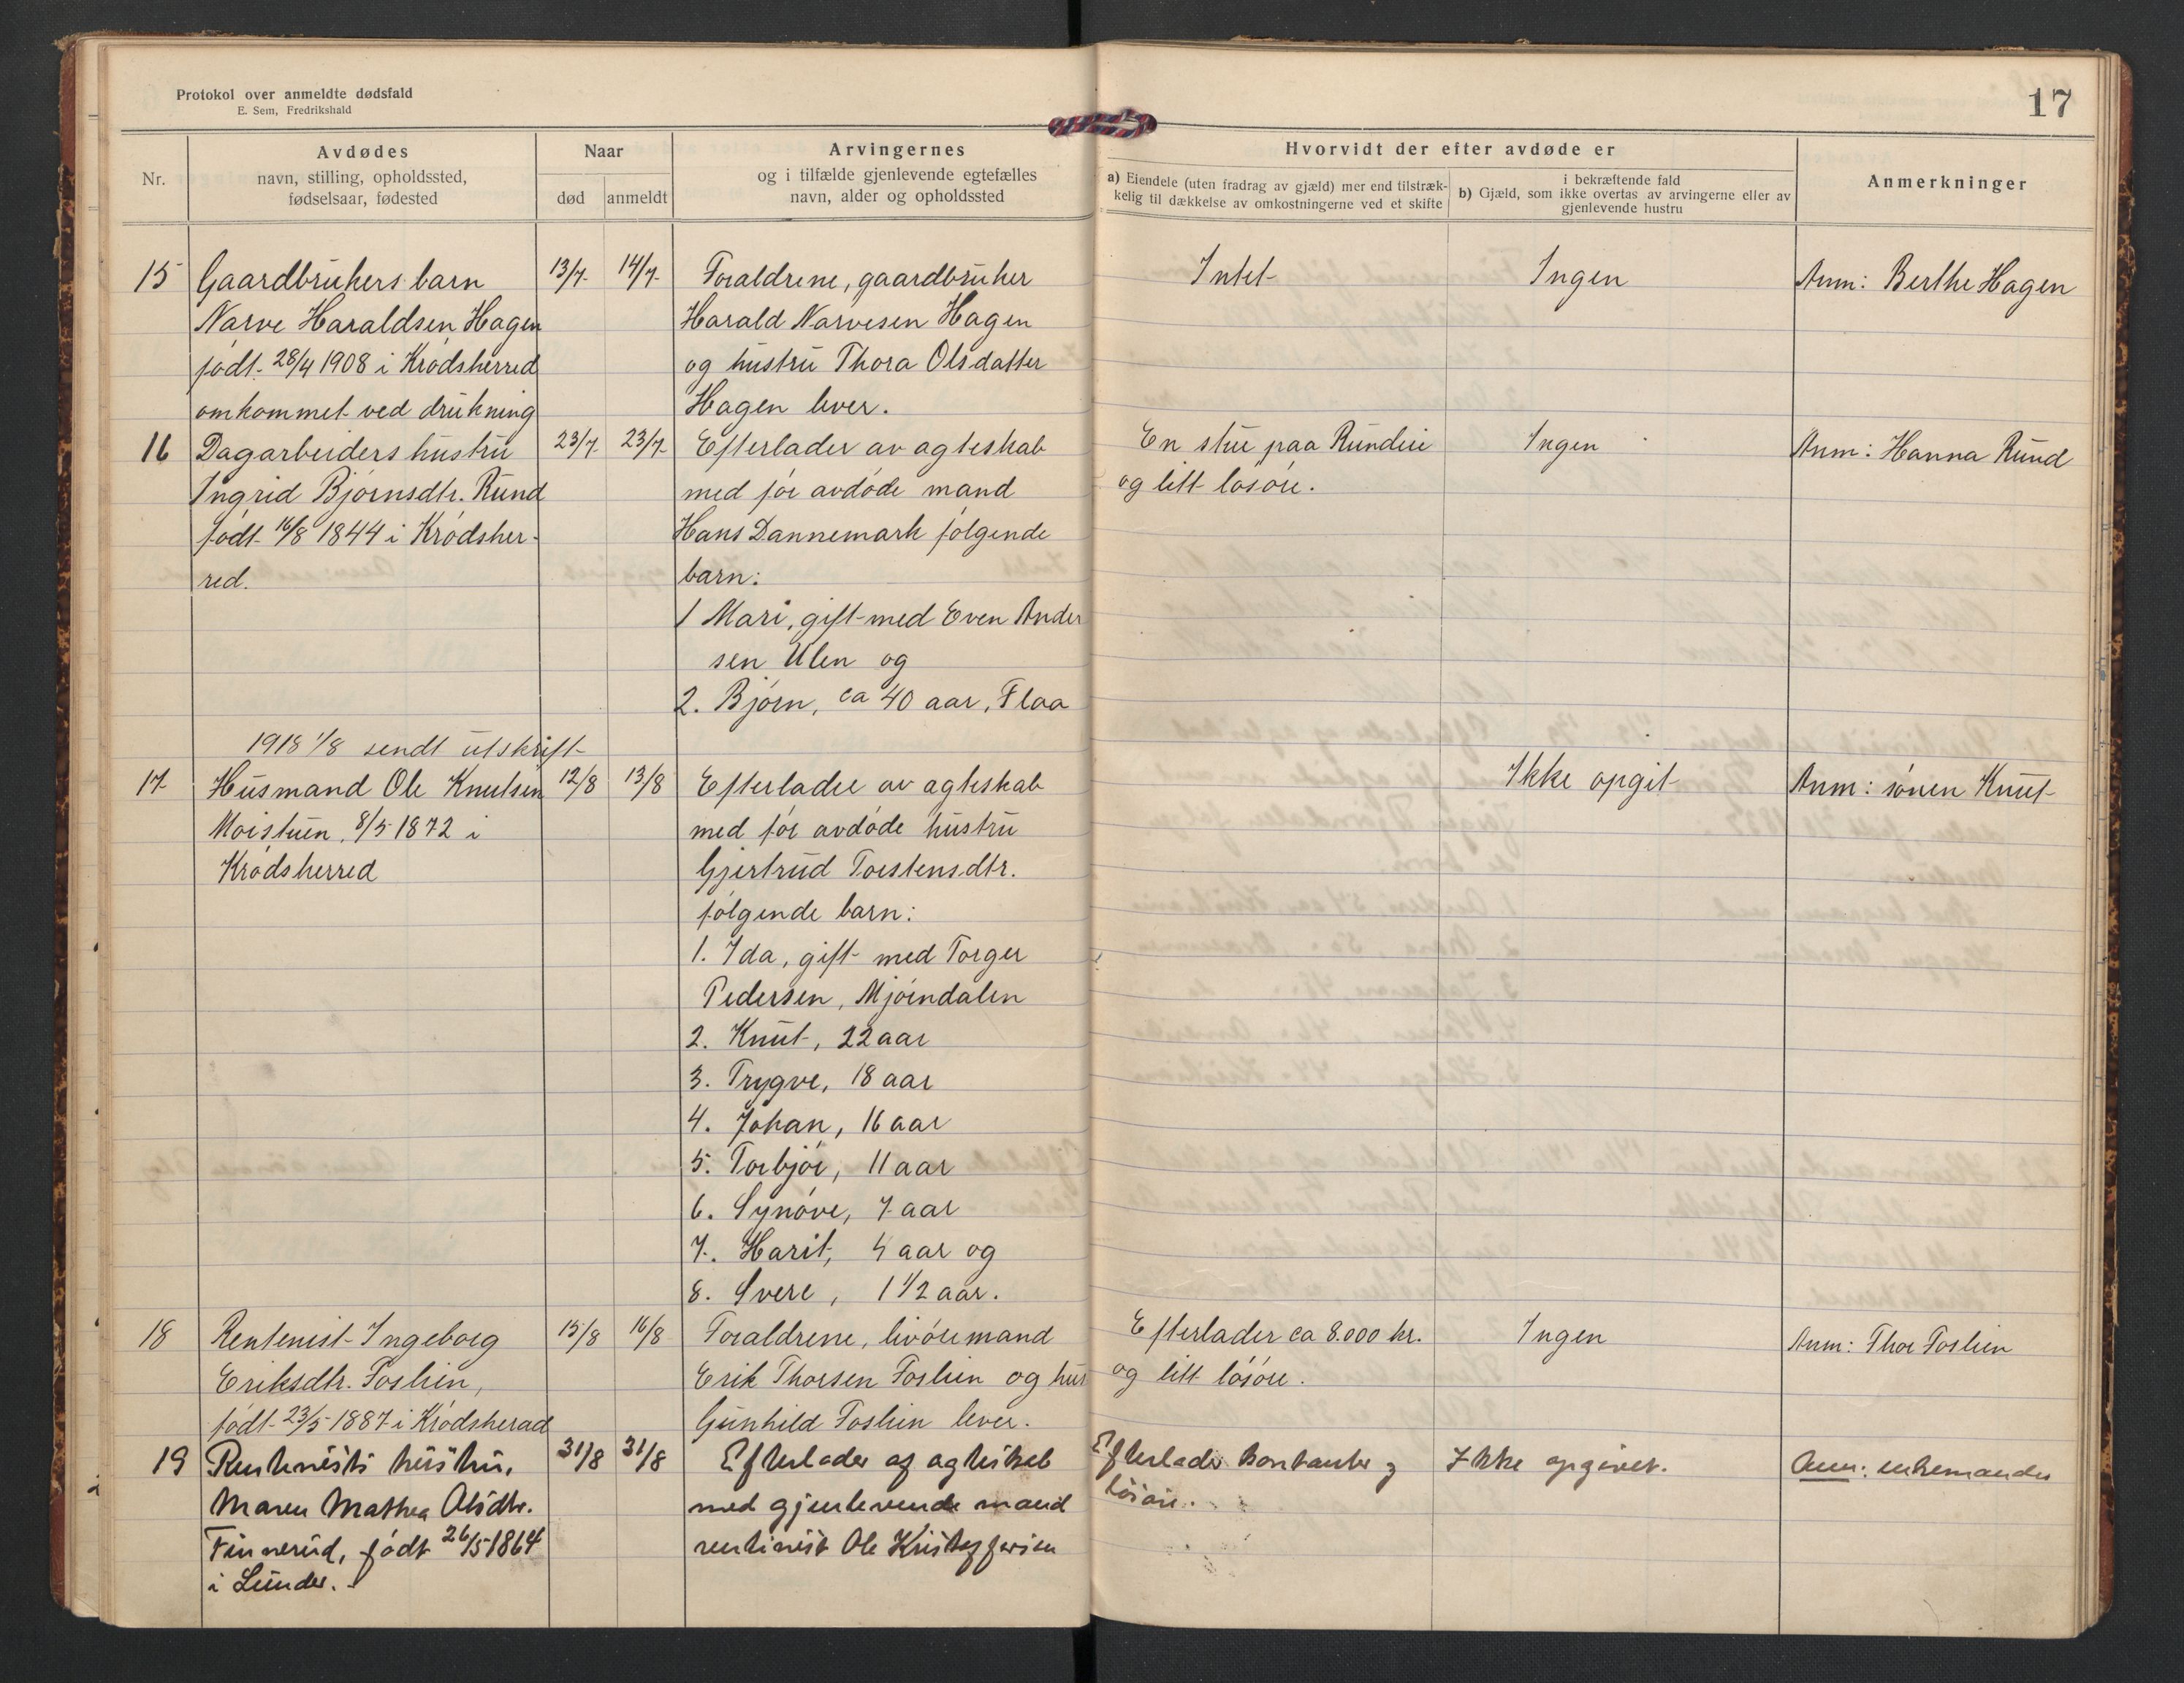 Protokol over anmeldte dødsfald
E. Sem, Fredrikshald
17
Nr.
Avdødes
navn, stilling, opholdssted,
fødselsaar, fødested
Naar
død anmeldt
Arvingernes
og i tilfælde gjenlevende egtefælles
navn, alder og opholdssted
Hvorvidt der efter avdøde er
a) Eiendele (uten fradrag av gjæld) mer end tilstræk-
kelig til dækkelse av omkostningerne ved et skifte
i bekræftende fald
b) Gjæld, som ikke overtas av arvingerne eller av
gjenlevende hustru
Anmerkninger
15 Gaardbrukers barn 13/7. 14/7. Foraldrene, gaardbruker Intet Ingen Anm: Berthe Hagen
Narve Haraldsen Hagen Harald Narvesen Hagen
født 28/4 1908 i Krødsherred og hustru Thora Olsdatter
omkommet ved drukning Hagen lever.
16 Dagarbeiders hustru 23/7. 23/7. Efterlader av agteskab En stue paa Rundeie Ingen Anm: Hanna Rund
Ingrid Bjørnsdtr. Rund med før avdøde mand og litt løsøre.
født 16/8 1844 i Krødsher- Hans Dannemark følgende
red. barn:
1 Mari, gift med Even Ander
sen Ulen og
2. Bjørn, ca 40 aar, Flaa
1918 1/8 sendt utskrift
17 Husmand Ole Knutsen 12/8 13/8 Efterlader av agteskab Ikke opgit Anm: sønen Knut
Moistuen, 8/5 1872 i med før avdøde hustru
Krødsherred Gjertrud Torstensdtr.
følgende barn:
1. Ida, gift med Torger
Pedersen, Mjøndalen
2. Knut, 22 aar
3. Trygve, 18 aar
4. Johan, 16 aar
5. Torbjør, 11 aar
6. Synøve, 7 aar
7. Harit, 4 aar og
8. Svere, 1 1/2 aar.
18 Rentenist Ingeborg 15/8 16/8 Foraldrene, livøremand Efterlader ca 8.000 kr. Ingen Anm: Thor Foslien
Eriksdtr. Foslien, Erik Thorsen Foslien og hus og litt løsøre.
født 23/5 1887 i Krødsherad Gunhild Foslien lever.
19 Rentenists hustru, 31/8 31/8 Efterlader af agteskab Efterlader kontanter og Ikke opgivet. Anm: enkemanden
Maren Mathea Olsdtr. med gjenlevende mand løsøre.
Finnerud, født 26/5 1864 rentenist Ole Kristoffersen
i Lunder.